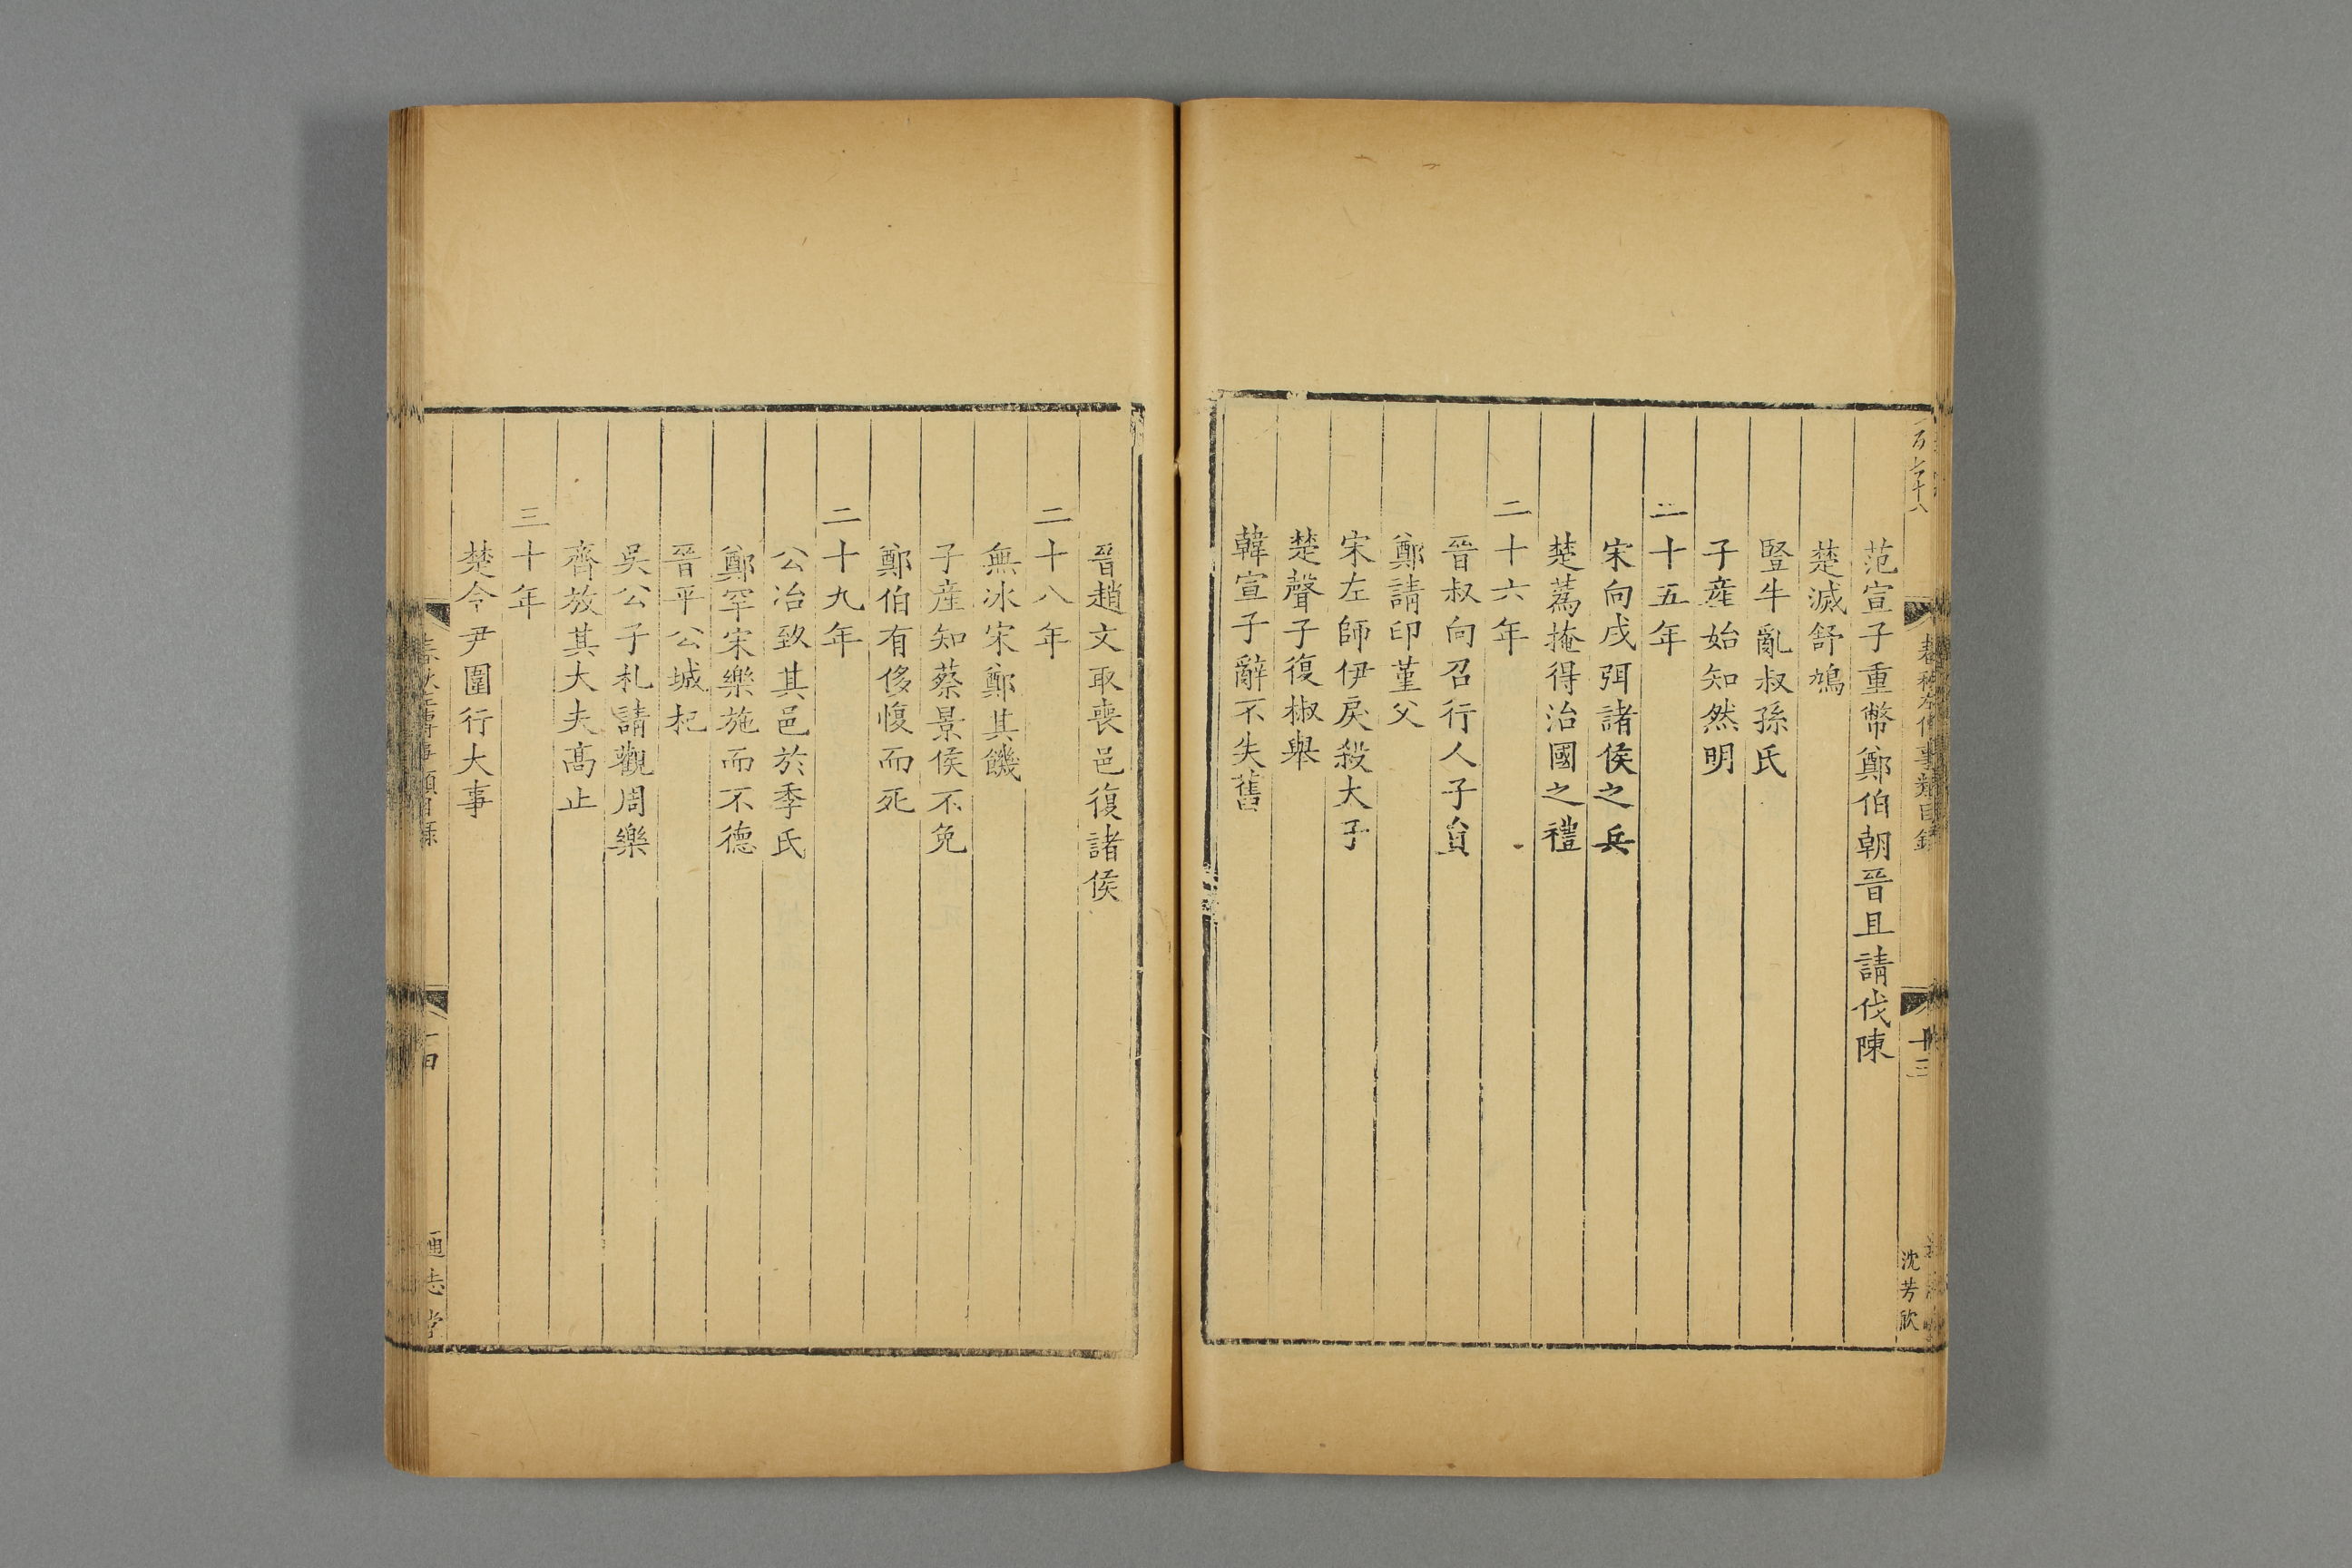 范宣子重幣鄭伯朝晉且請伐陳
楚滅舒鳩
豎牛亂叔孫氏
子産始知然明
二十五年
宋向戌弭諸侯之兵
楚蒍掩得治國之禮
二十六年
晉叔向召行人子貟
鄭請印堇父
宋左師伊戾殺大子
楚聲子復椒舉
韓宣子辭不失舊
十三
沈芳欣
晉趙文取喪邑復諸侯
二十八年
無冰宋鄭其饑
子産知蔡景侯不免
鄭伯有侈愎而死
二十九年
公冶致其邑於季氏
鄭罕宋樂施而不德
晉平公城杞
吳公子札請觀周樂
齊放其大夫高止
三十年
楚令尹圍行大事
通志堂